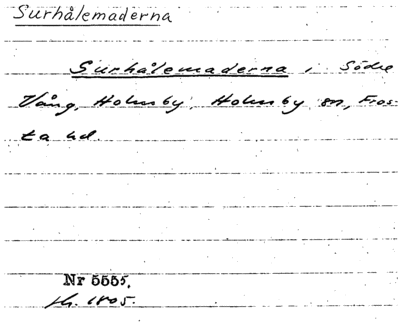 Surhålemaderna
Surhålemaderna i Södre
Vång, Holmby, Holmby sn, Fros-
ta hd.
Nr 5555,
sk. 1805.